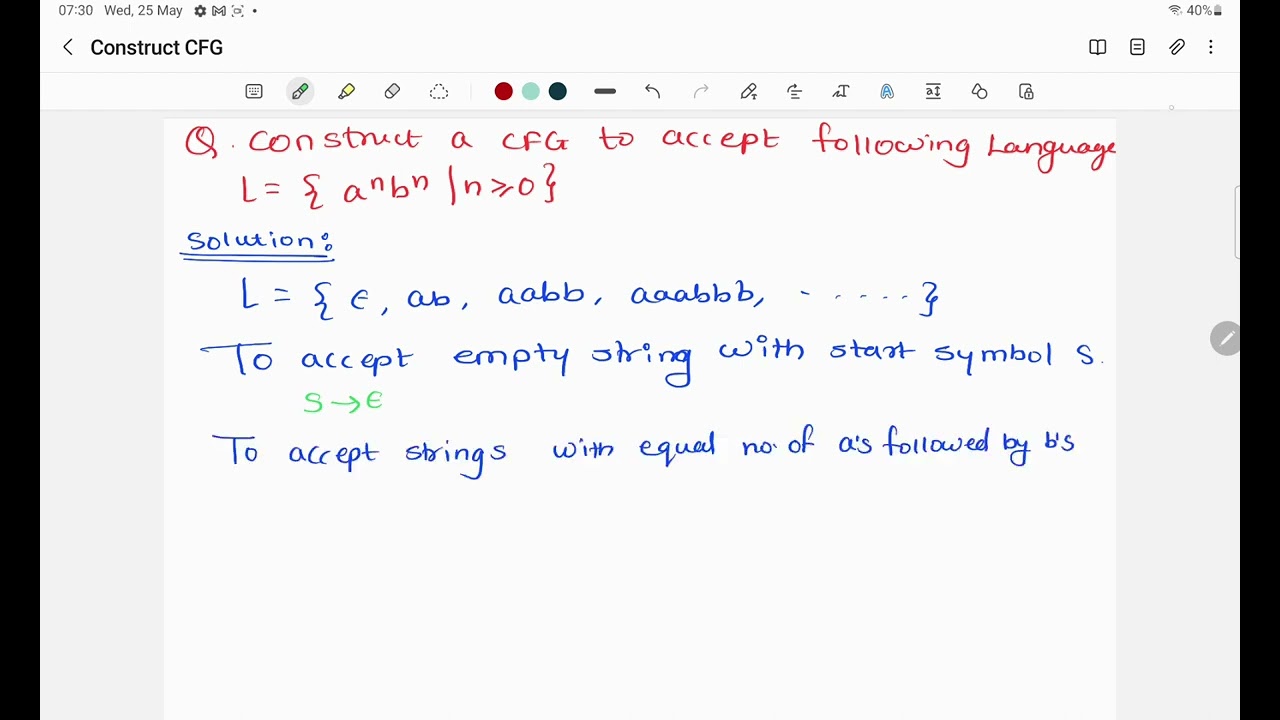 07:30 Wed, 25 May
40%
Construct CFG
Q. Construct a CFG to accept following Language
L = { aⁿbⁿ | n ≥ 0 }
Solution:
L = { ϵ, ab, aabb, aaabbb, ...... }
To accept empty string with start symbol S.
S → ϵ
To accept strings with equal no. of a's followed by b's